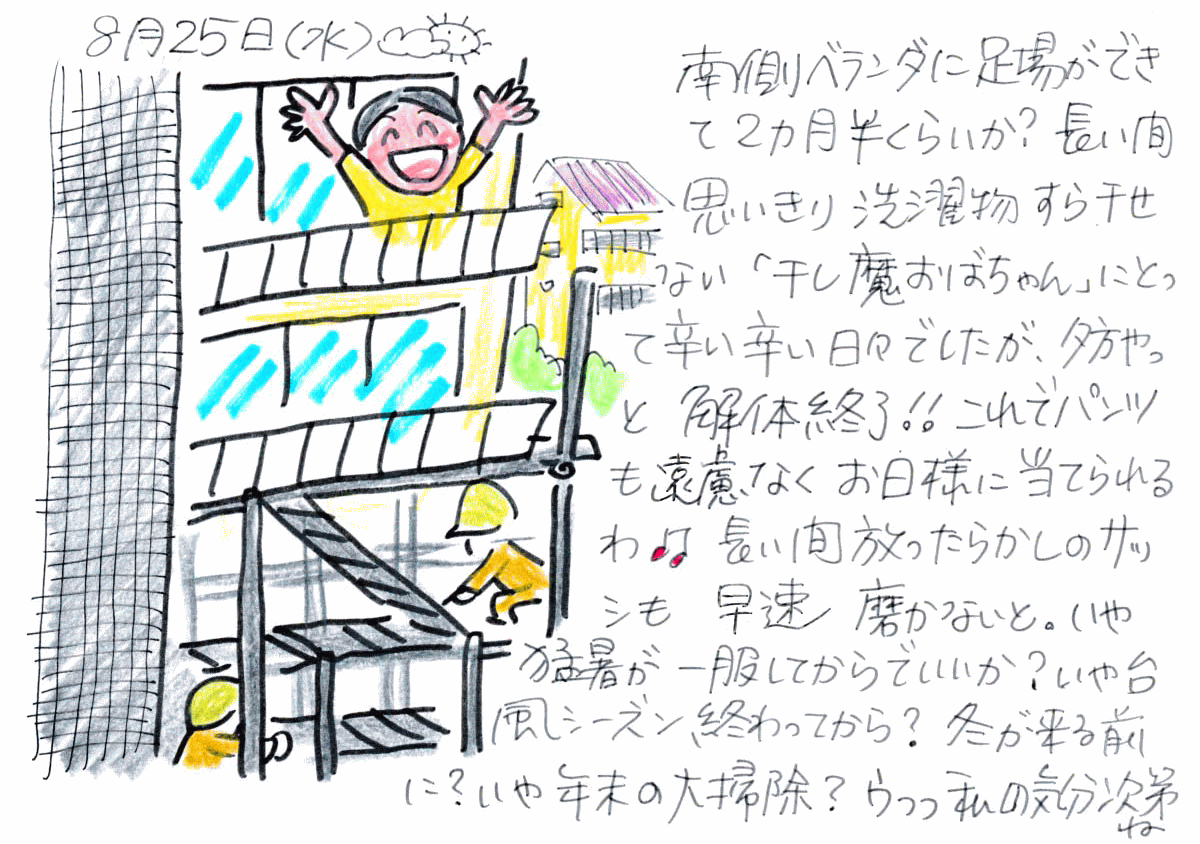 8月25日(水)
南側ベランダに足場ができ
て2カ月半くらいか?長い間
思いきり洗濯物すら干せ
ない「干し魔おばちゃん」にとっ
て辛い辛い日々でしたが、夕方やっ
と解体終了!!これでパンツ
も遠慮なくお日様に当てられる
わ♫長い間放ったらかしのサッ
シも早速磨かないと。いや
猛暑が一服してからでいいか?いや台
風シーズン終わってから?冬が来る前
に?いや年末の大掃除?うっっ私の気分次第
ね